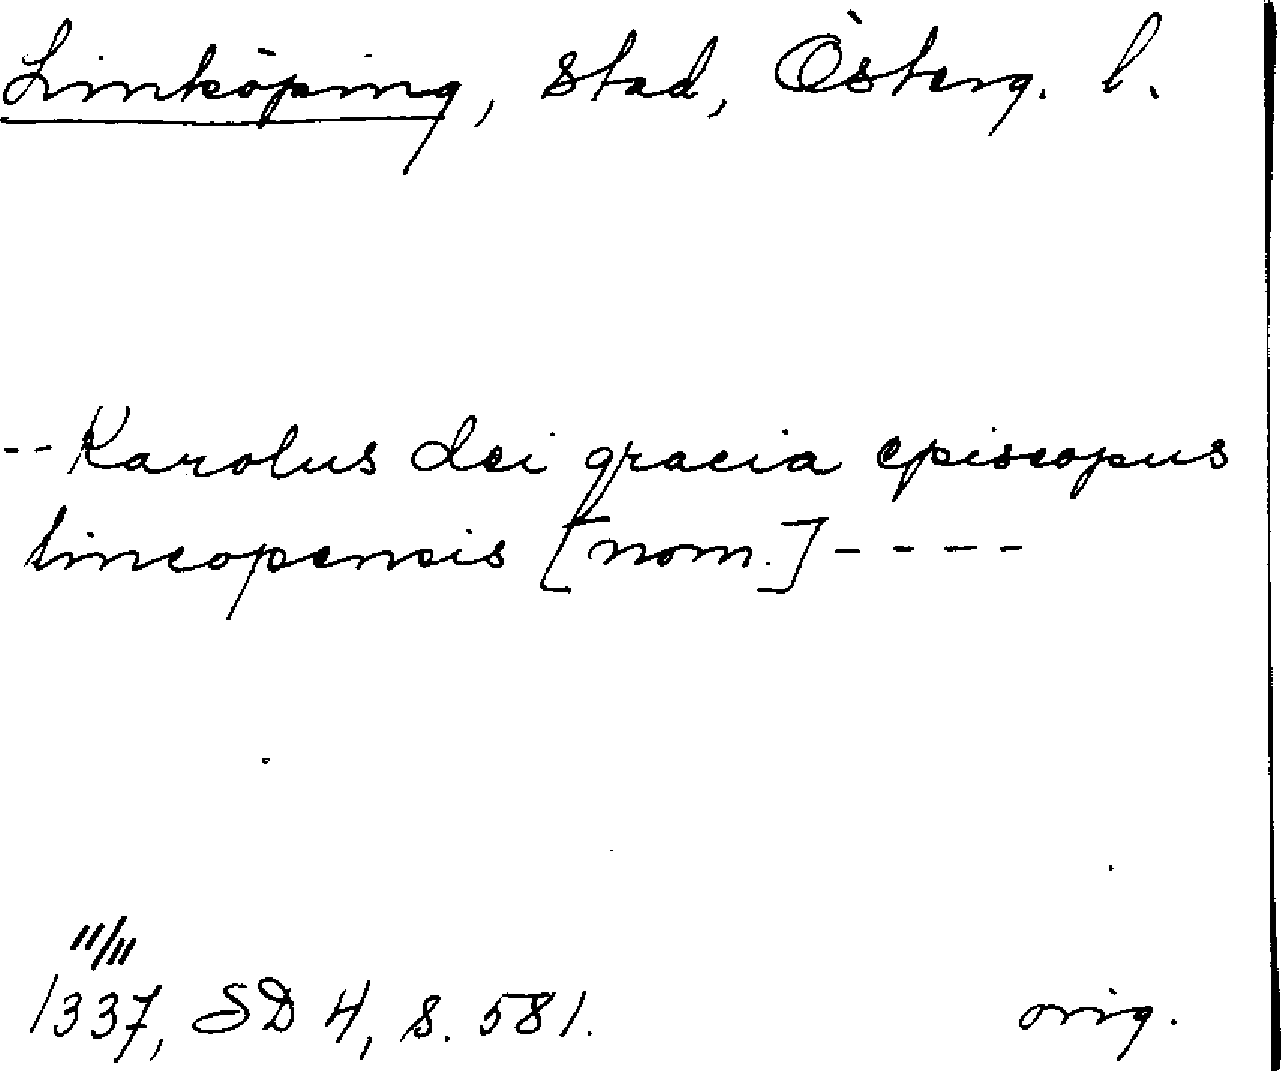 Linköping, stad, Österg. l.
-- Karolus dei gracia episcopus
lincopensis [nom.] - - - -
11/11
1337, SD 4, s. 581. orig.